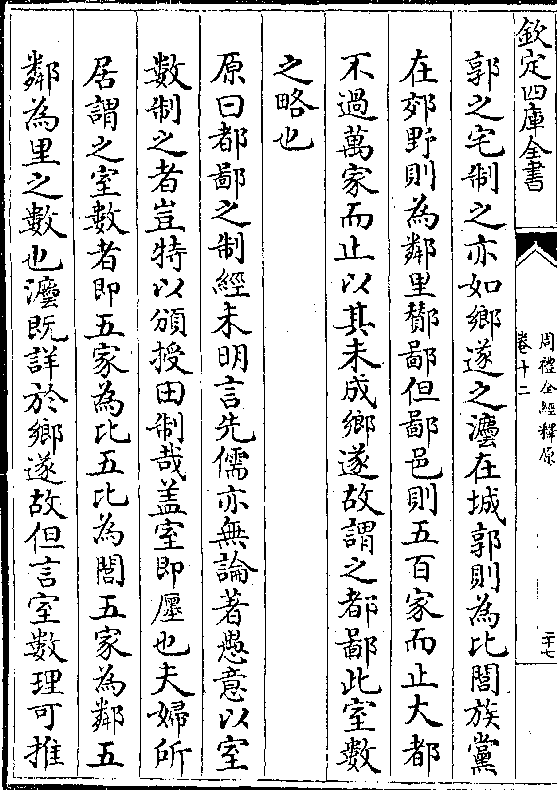 欽定四庫全書
周禮全經釋原
卷十二
二十七
郭之宅制之亦如鄉遂之灋在城郭則為比閭族黨
在郊野則為鄰里酇鄙但鄙邑則五百家而止大都
不過萬家而止以其未成鄉遂故謂之都鄙此室數
之略也
原曰都鄙之制經未明言先儒亦無論著愚意以室
數制之者豈特以頒授田制哉盖室即廛也夫婦所
居謂之室數者即五家為比五比為閭五家為鄰五
鄰為里之數也灋既詳於鄉遂故但言室數理可推